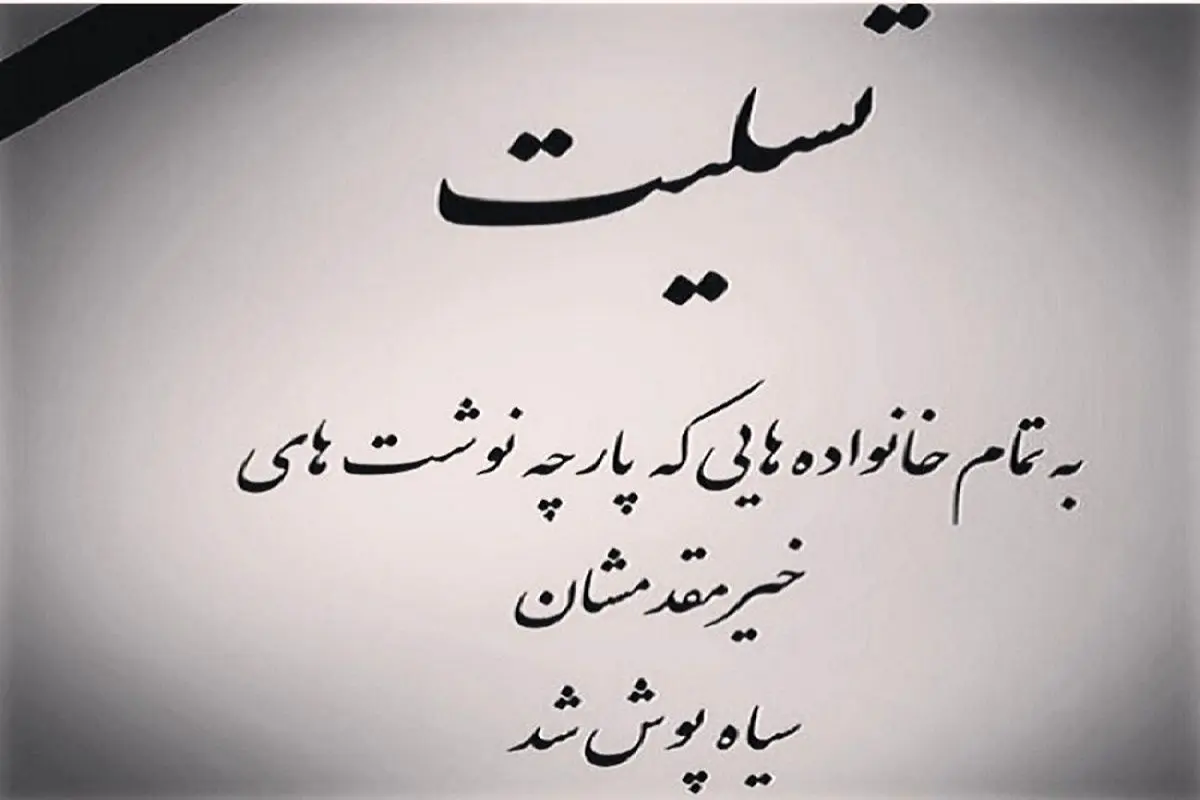 تسلیت
به تمام خانواده هایی که پارچه نوشت های
خیر مقدمشان
سیاه پوش شد